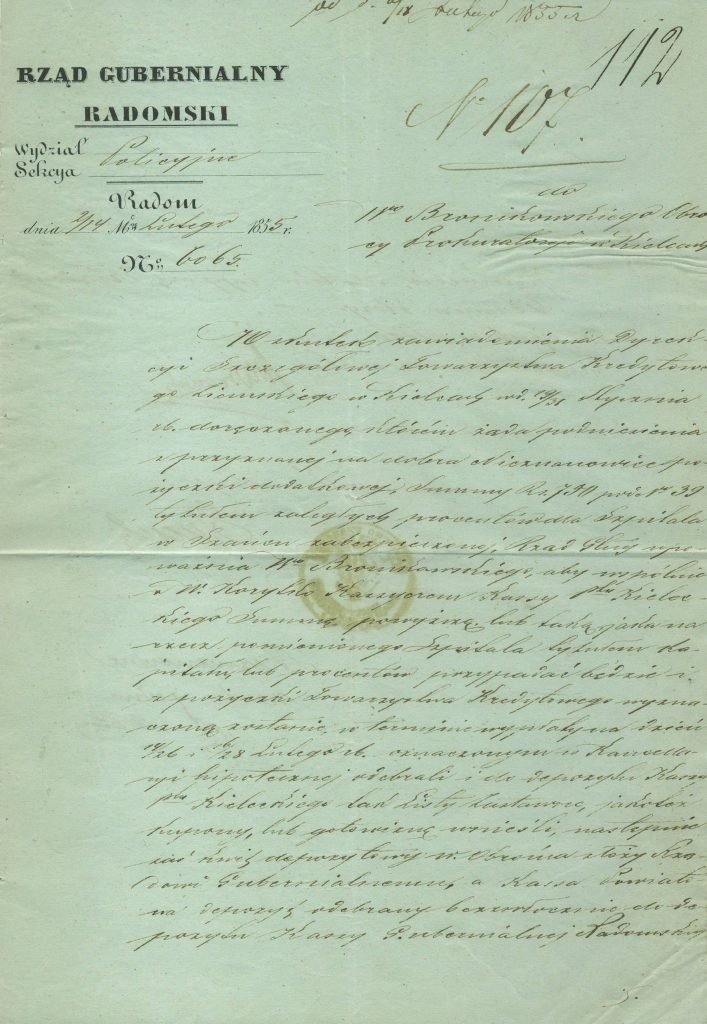 Lutego 1855 r
112
RZĄD GUBERNIALNY
RADOMSKI
N° 107.
Wydział Policyjne
Sekcya
Radom
dnia 2/14 Mca Lutego 1855 r.
No 6065.
do
Wgo Bronikowskiego Obro
cy Prokuratoryi w Kielcach
W skutek zawiadomienia Dyrek
cyi Szczegółowej Towarzystwa Kredytowe
go Ziemskiego w Kielcach z d. 19/31 Stycznia
rb. doręczonego, którém żąda podniesienia
z przyznanej na dobra Nieznanowice po
życzki dodatkowej, Summy Rs. 750 pod Nr 39
tytułem zaległych procentów dla Szpitala
w zabezpieczonej, Rząd Gub. upo
ważnia Wgo Bronikowskiego, aby wspólnie
z W. Kassyerem Kassy Ptu Kielec
kiego Summę powyższą lub taką jaka na
rzecz pomienionego Szpitala tytułem Ka
pitału, lub procentów przypadać będzie i
z pożyczki Towarzystwa Kredytowego wyzna
czoną zostanie, w terminie wypłaty na dzień
14/26 i 16/28 Lutego rb. oznaczonym w Kancella
ryi hipotecznej odebrali i do depozytu Kassy
Ptu Kieleckiego tak Listy Zastawne, jakoteż
kupony, lub gotowiznę wnieśli, następnie
zaś kwit depozytowy W. Obrońca złoży Rzą
dowi Gubernialnemu, a Kassa Powiato
wa depozyt odebrany bezzwłocznie do de
pozytu Kassy Gubernialnej Radomskiej